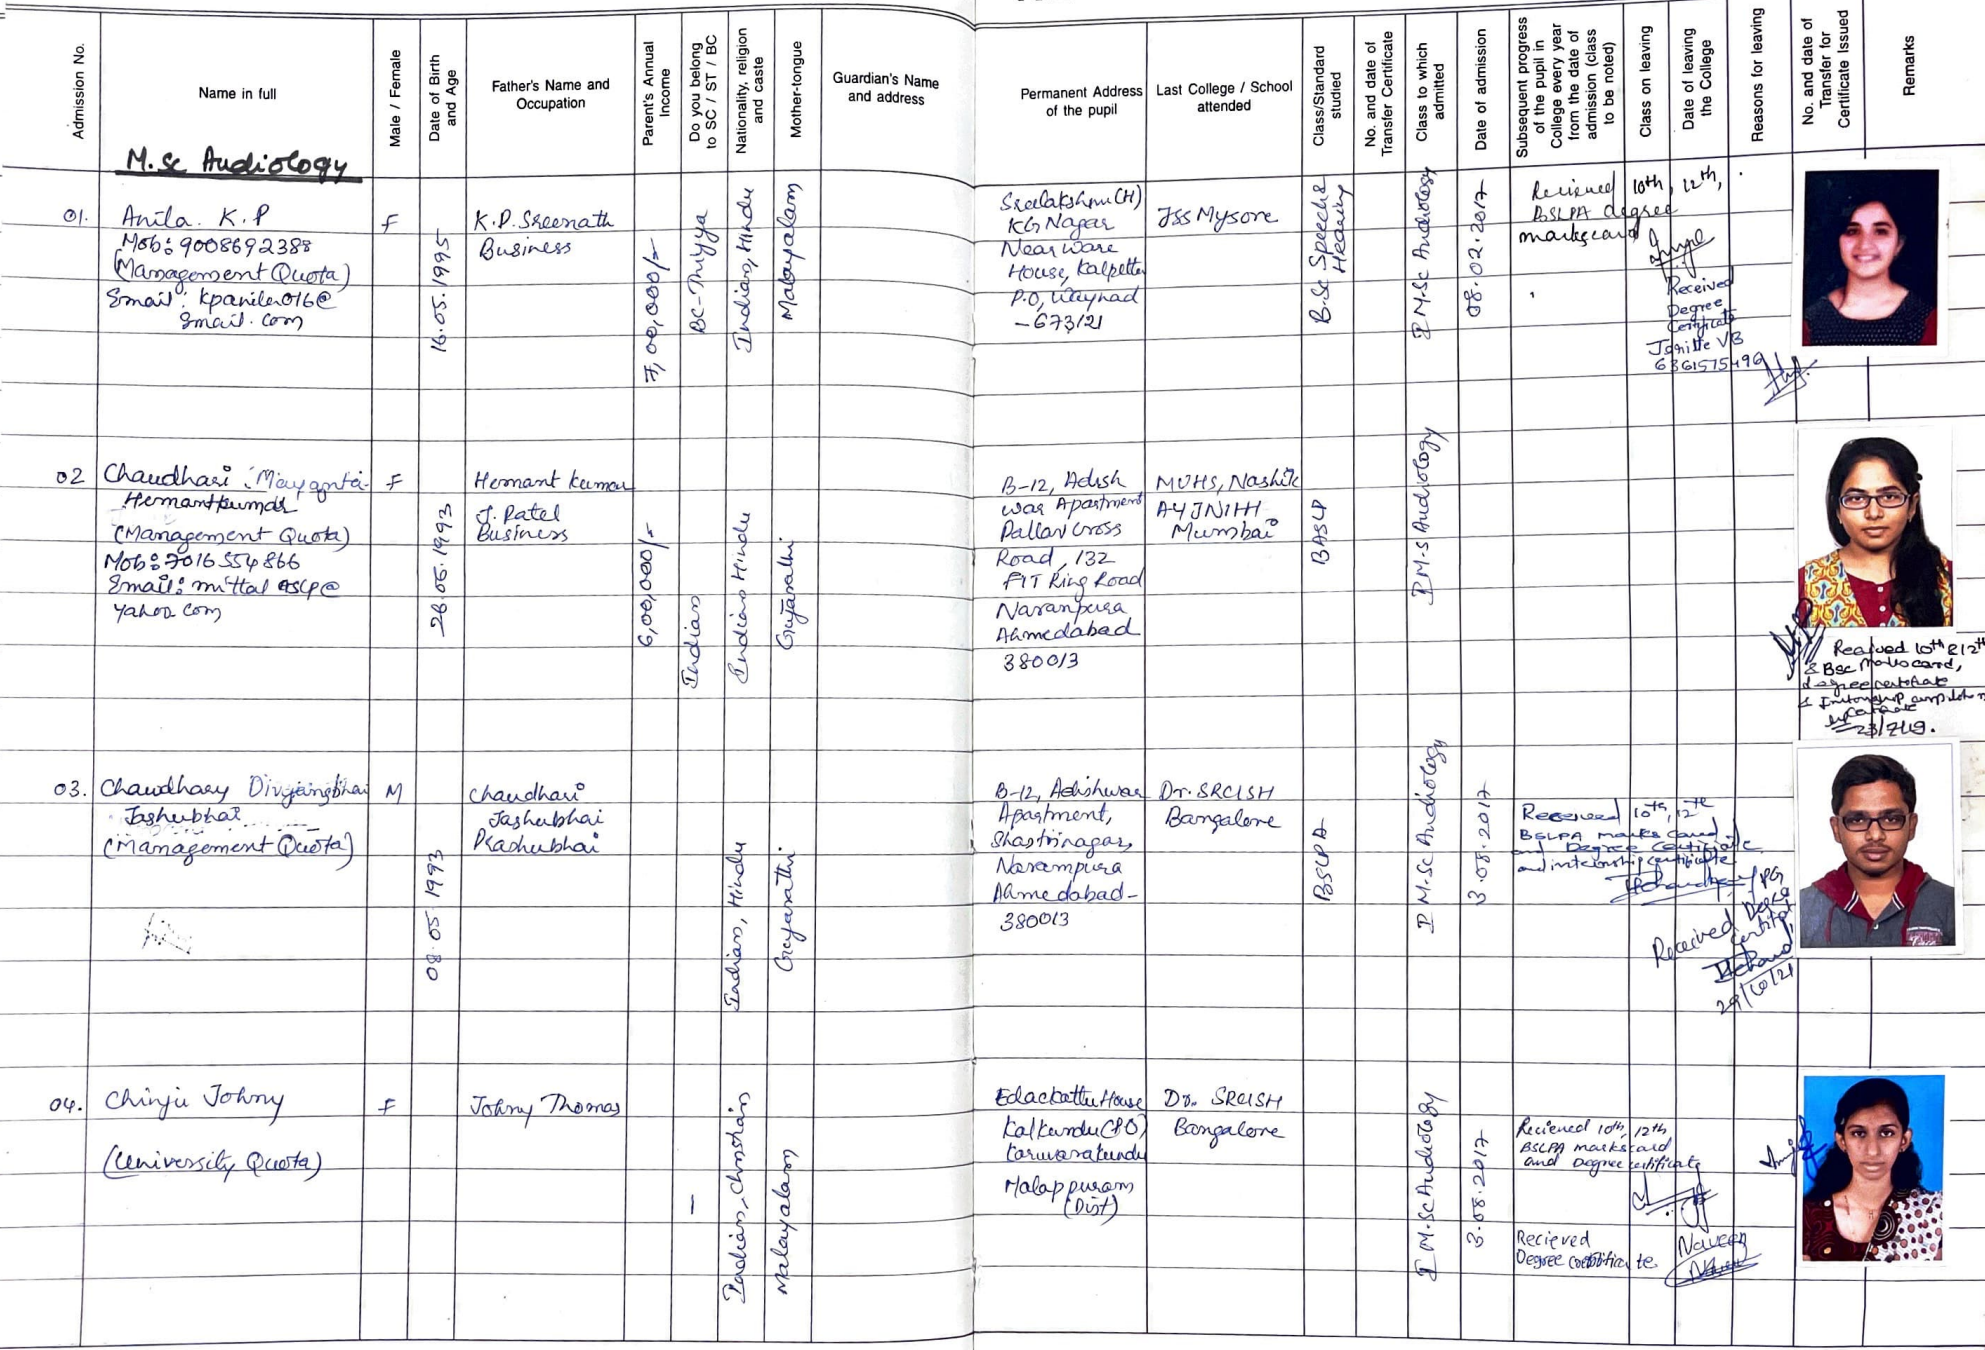 Admission No.
Name in full
Male / Female
Date of Birth
and Age
Father's Name and
Occupation
Parent's Annual
Income
Do you belong
to SC / ST / BC
Nationality, religion
and caste
Mother-tongue
Guardian's Name
and address
Permanent Address
of the pupil
Last College / School
attended
Class/Standard
studied
No. and date of
Transfer Certificate
Class to which
admitted
Date of admission
Subsequent progress
of the pupil in
College every year
from the date of
admission (class
to be noted)
Class on leaving
Date of leaving
the College
Reasons for leaving
No. and date of
Transfer for
Certificate Issued
Remarks
M.Sc Audiology
01.
Anila. K.P
Mob: 9008692388
(Management Quota)
Email: kpanila016@
gmail.com
F
16.05.1995
K.P. Sreenath
Business
7,00,000/-
BC-Thiyya
Indian, Hindu
Malayalam
Sreelakshmi(H)
KG Nagar
Near Ware
House, Kalpetta
P.O, Waynad
-673121
JSS Mysore
B.Sc Speech &
Hearing
I M.Sc Audiology
08.02.2017
Recieved 10th, 12th,
BSLPA degree
markscard
Received
Degree
Certificate
6361575496
02
Chaudhari
Hemantkumar
(Management Quota)
Mob: 7016554866
Email: mittal aslp@
yahoo.com
F
26.05.1993
Hemant kumar
J. Patel
Business
6,00,000/-
Indian
Indian Hindu
Gujarathi
B-12, Adish
war Apartment
Pallav Cross
Road, 132
FIT Ring Road
Naranpura
Ahmedabad
380013
MUHS, Nashik
AYJNIHH
Mumbai
BASLP
I M.S Audiology
Received 10th & 12th
& Bsc Marks card,
degree certificate
03.
Chawdhary Divyangbhai
Jashubhai
(Management Quota)
M
08.05 1993
Chaudhari
Jashubhai
Prashubhai
Indian, Hindu
Gujarathi
B-12, Adishwar
Apartment,
Shastrinagar,
Narampura
Ahmedabad-
380013
Dr. SRCISH
Bangalore
BSLPA
I M.Sc Audiology
3.08.2017
Receieved 10th, 12th
BSLPA marks card
and Degree Certificate
and internship certificate
Received Degree
29/10/21
04.
Chinju Johny
(University Quota)
F
Johny Thomas
—
Indian, Christian
Malayalam
Edackattu House
Kalkundu (PO)
Karuvarakundu
Malappuram
(Dist)
Dr. SRCISH
Bangalore
I M.Sc Audiology
3.08.2017
Recieved 10th, 12th
BSLPA markscard
and Degree certificate
Recieved
Degree certificate
Naveen